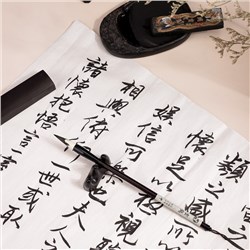 類之盛
懷足以極視聽
娛信可樂也夫人之
相與俯仰一世或取
諸懷抱悟言一